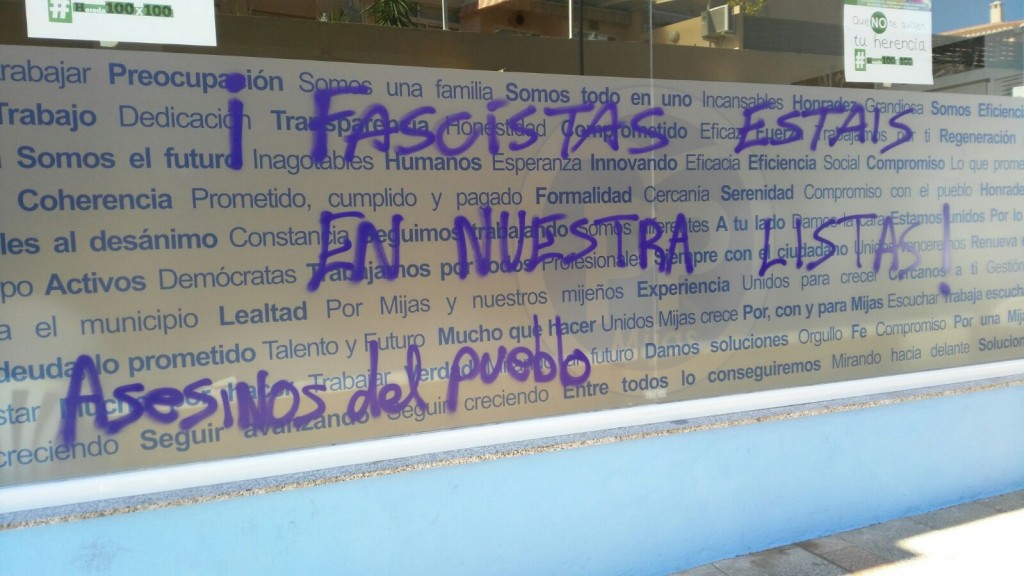 Hereda 100x100
Que NO te quiten
tu herencia
# Hereda 100x100
rabajar Preocupación Somos una familia Somos todo en uno Incansables Honradez Grandiosa Somos Eficienci
Trabajo Dedicación Transparencia Honestidad Comprometido Eficaz Fuerza Trabajamos por ti Regeneración
Somos el futuro Inagotables Humanos Esperanza Innovando Eficacia Eficiencia Social Compromiso Lo que prome
Coherencia Prometido, cumplido y pagado Formalidad Cercanía Serenidad Compromiso con el pueblo Honrade
les al desánimo Constancia Seguimos trabajando Somos diferentes A tu lado Damos la cara Estamos unidos Por lo
po Activos Demócratas Trabajamos por todos Profesionales Siempre con el ciudadano Unidos venceremos Renueva
a el municipio Lealtad Por Mijas y nuestros mijeños Experiencia Unidos para crecer Cercanos a ti Gestión
deuda lo prometido Talento y Futuro Mucho que hacer Unidos Mijas crece Por, con y para Mijas Escuchar Trabaja escucha
futuro Damos soluciones Orgullo Fe Compromiso Por una Mija
star Mucho hacer Trabajar verdad Seguir creciendo Entre todos lo conseguiremos Mirando hacia delante Solucion
creciendo Seguir avanzando
Mijas
¡ FASCISTAS ESTAIS
EN NUESTRA LISTAS!
ASESINOS del pueblo